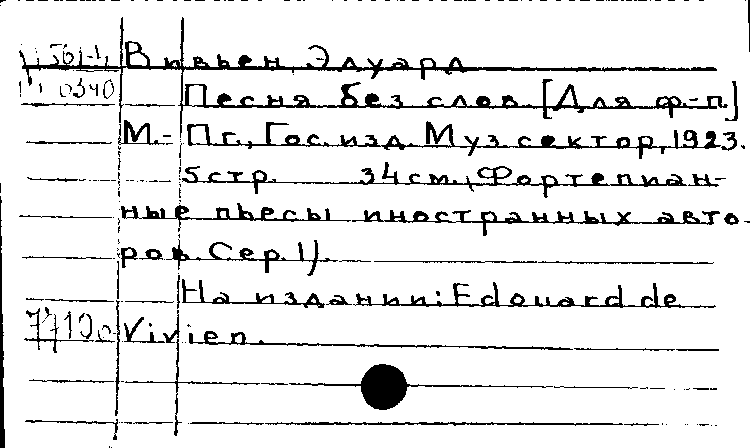 Вивьен, Эдуард
Песня без слов. [Для ф.-п.]
М.-Пг., Гос. изд. Муз. сектор, 1923.
5 стр. 34 см., (Фортепиан-
ные пьесы иностранных авто-
ров. Сер. 1).
На издании: Edouard de
Vivien.